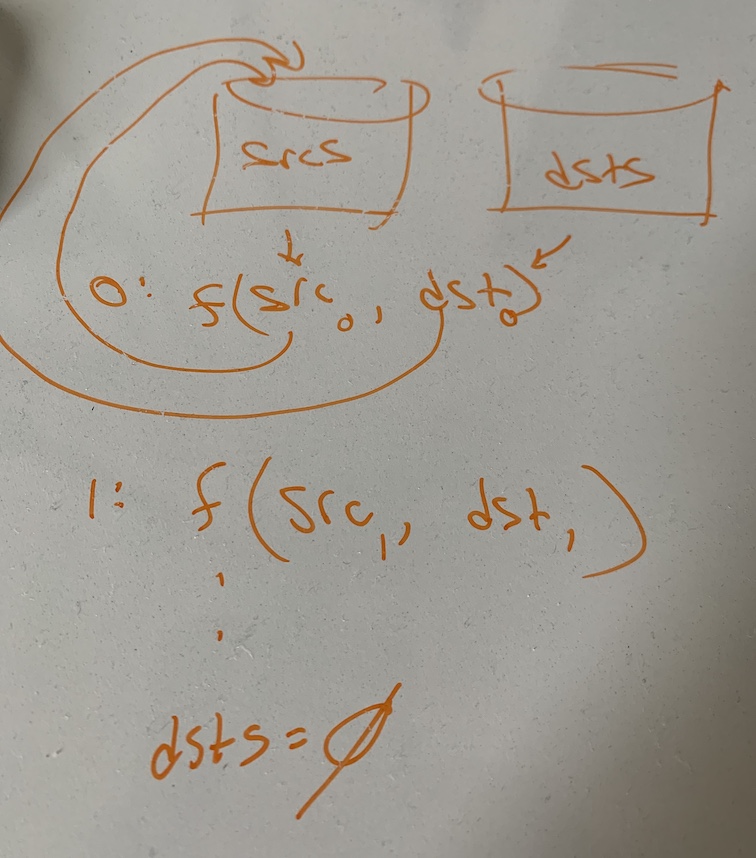 srcs
dsts
0: f(src₀, dst₀)
1: f(src₁, dst₁)
dsts = ∅